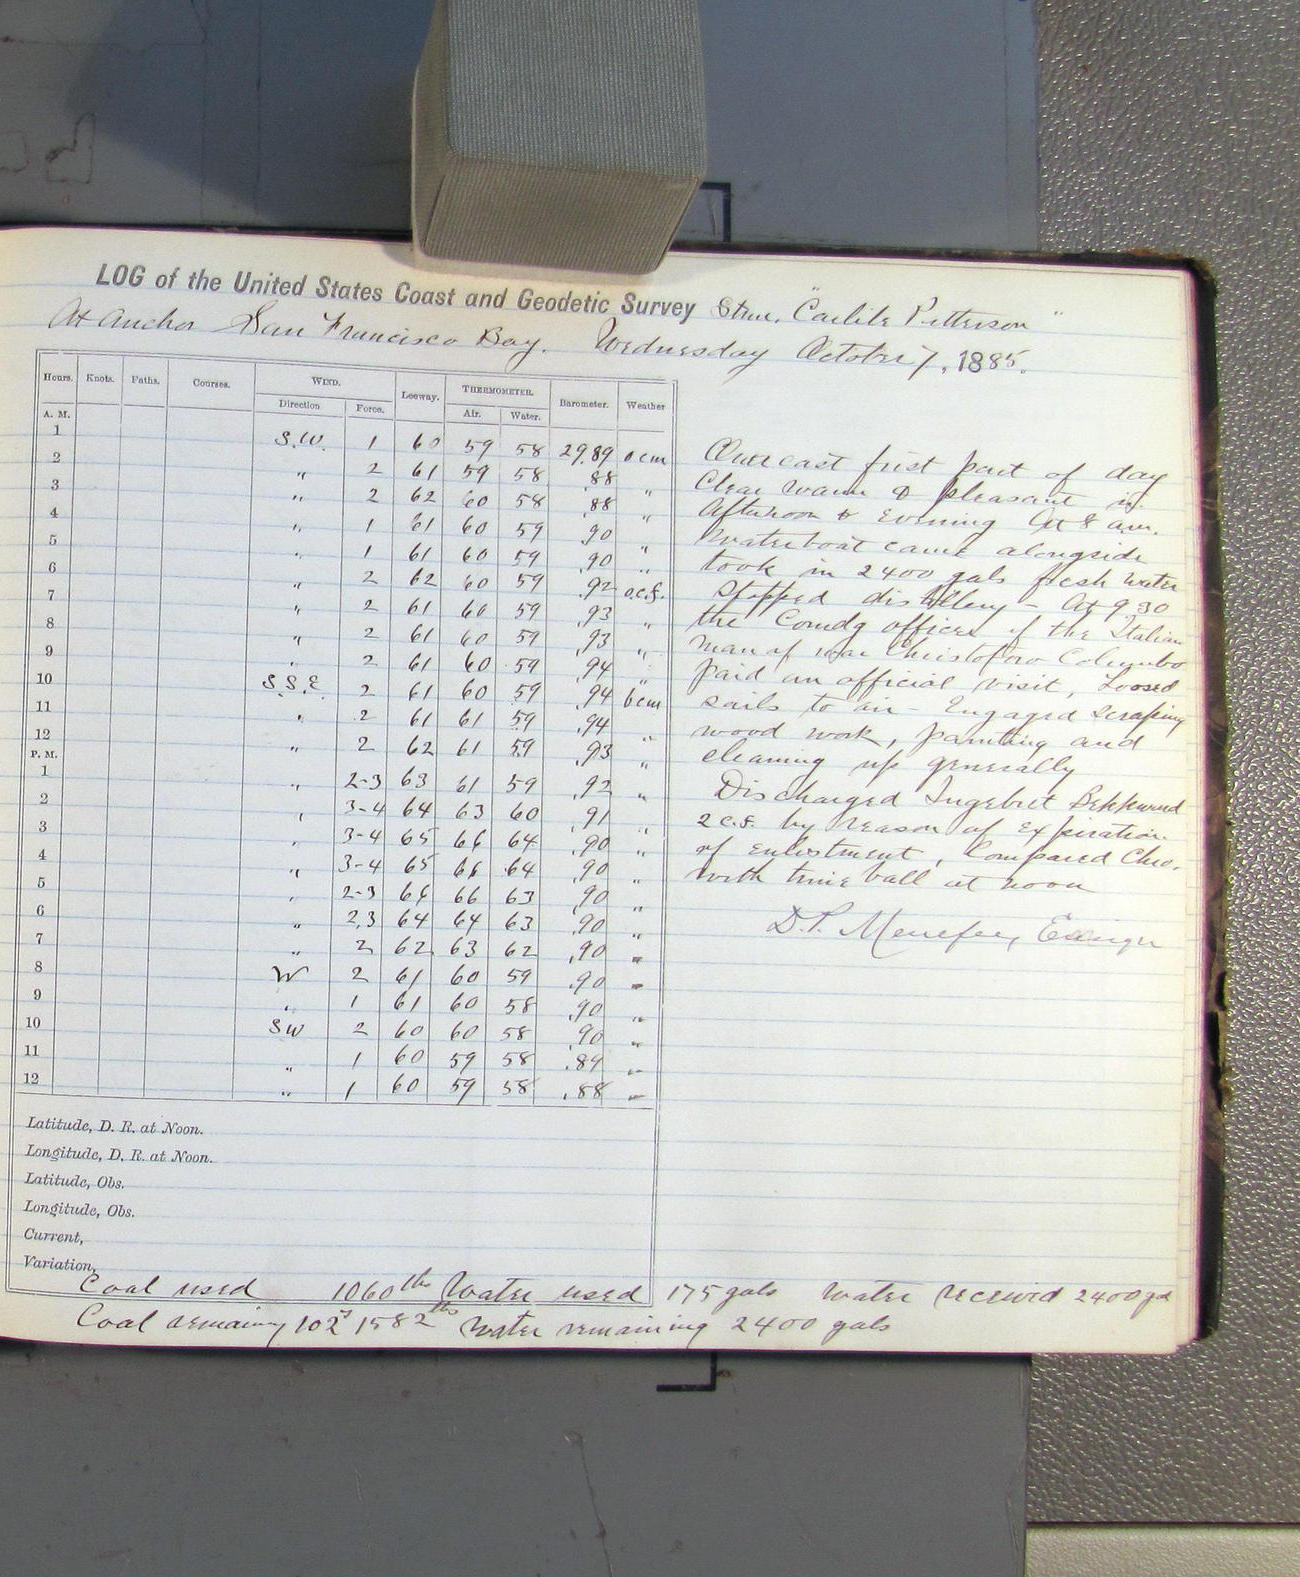 LOG of the United States Coast and Geodetic Survey Stmr. "Carlile Patterson"
At Anchor San Francisco Bay. Wednesday October 7, 1885.
Hours. Knots. Faths. Courses. WIND. Direction Force. Leeway. THERMOMETER. Air. Water. Barometer. Weather
A. M.
1 S.W. 1 60 59 58 29.89 ocm
2 " 2 61 59 58 .88 "
3 " 2 62 60 58 .88 "
4 " 1 61 60 59 .90 "
5 " 1 61 60 59 .90 "
6 " 2 62 60 59 .92 o.c.f.
7 " 2 61 60 59 .93 "
8 " 2 61 60 59 .93 "
9 " 2 61 60 59 .94 "
10 S.S.E. 2 61 60 59 .94 bcm
11 " 2 61 61 59 .94 "
12 " 2 62 61 59 .93 "
P. M.
1 " 2-3 63 61 59 .92 "
2 " 3-4 64 63 60 .91 "
3 " 3-4 65 66 64 .90 "
4 " 3-4 65 66 64 .90 "
5 " 2-3 66 66 63 .90 "
6 " 2.3 64 64 63 .90 "
7 " 2 62 63 62 .90 "
8 W 2 61 60 59 .90 "
9 " 1 61 60 58 .90 "
10 SW 2 60 60 58 .90 "
11 " 1 60 59 58 .89 "
12 " 1 60 59 58 .88 "
Overcast first part of day
Clear warm & pleasant in
Afternoon & Evening At 8 am.
Waterboat came alongside
took in 2400 gals fresh water
Stopped distillery - At 9 30
the Comdg officer of the Italian
man of war Christoforo Columbo
paid an official visit, Loosed
sails to air - Engaged scraping
wood work, painting and
cleaning up generally
Discharged Ingebret
2 c.f. by reason of expiration
of enlistment, Compared Chro.
with time ball at noon
D.P. Menefee, Ensign
Latitude, D. R. at Noon.
Longitude, D. R. at Noon.
Latitude, Obs.
Longitude, Obs.
Current,
Variation,
Coal used 1060 lbs Water used 175 gals Water received 2400 gs
Coal remaining 102 1582 lbs Water remaining 2400 gals